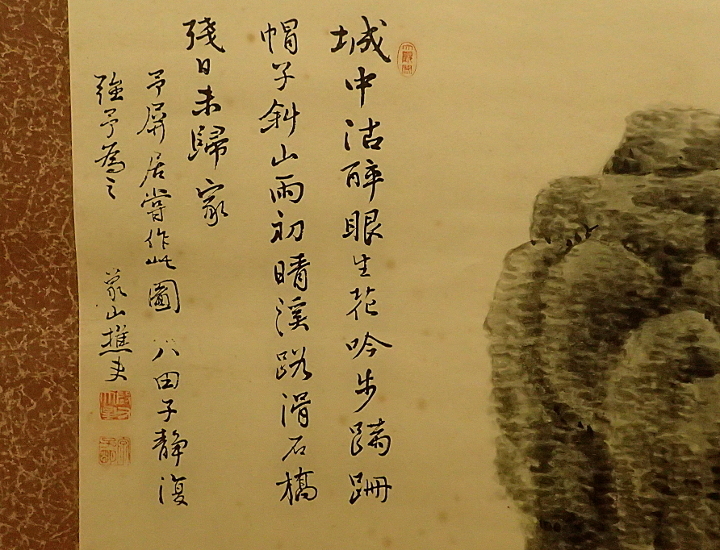 城中沽醉眼生花吟步蹣跚
帽子斜山雨初晴溪路滑石橋
殘日未歸家
予屏居嘗作此圖八田子静復
強予為之 蒙山樵夫